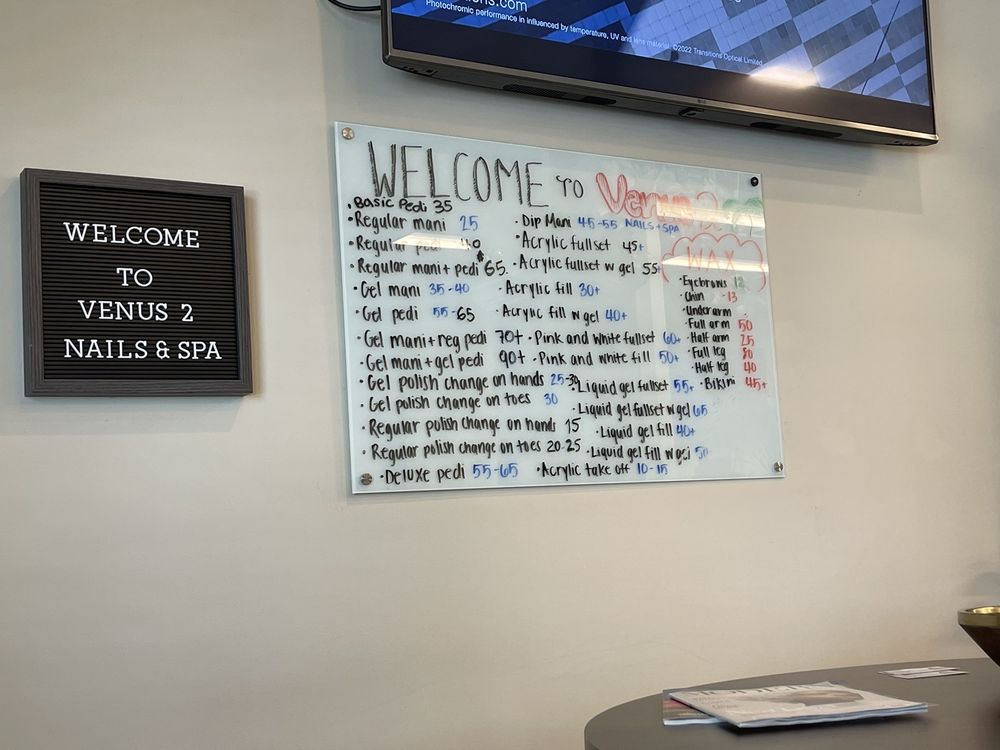 ons.com
Photochromic performance in influenced by temperature, UV and lens material. ©2022 Transitions Optical Limited.
WELCOME
TO
VENUS 2
NAILS & SPA
WELCOME TO Venus 2
NAILS + SPA
• Basic Pedi 35
• Regular mani 25
• Regular pedi 40
• Regular mani + pedi 65
• Gel mani 35-40
• Gel pedi 55-65
• Gel mani + reg pedi 70+
• Gel mani + gel pedi 90+
• Gel polish change on hands 25-30
• Gel polish change on toes 30
• Regular polish change on hands 15
• Regular polish change on toes 20-25
• Deluxe pedi 55-65
• Dip Mani 45-55
• Acrylic fullset 45+
• Acrylic fullset w gel 55+
• Acrylic fill 30+
• Acrylic fill w gel 40+
• Pink and white fullset 60+
• Pink and white fill 50+
• Liquid gel fullset 55+
• Liquid gel fullset w gel 65
• Liquid gel fill 40+
• Liquid gel fill w gel 50
• Acrylic take off 10-15
WAX
• Eyebrows 12
• Chin -13
• Under arm
• Full arm 50
• Half arm 25
• Full leg 80
• Half leg 40
• Bikini 45+